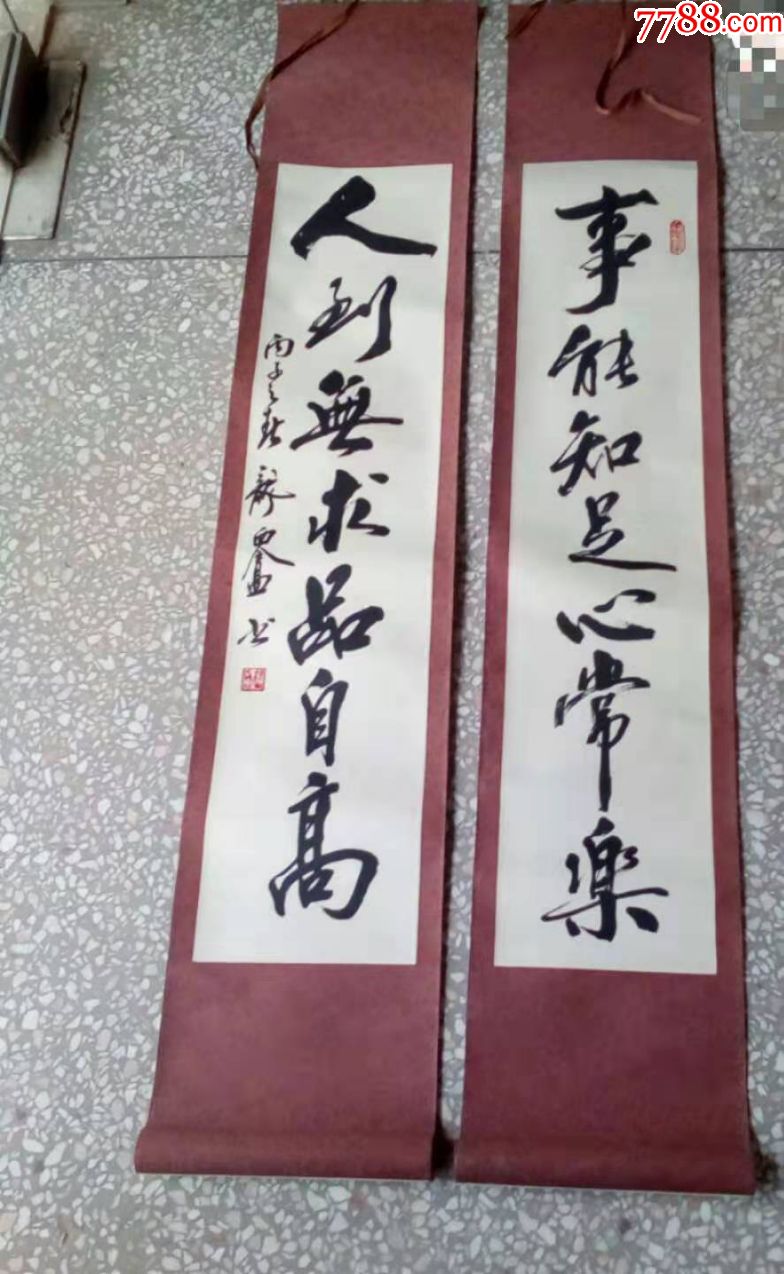 7788.com
事能知足心常樂
人到無求品自高
丙子之春
書